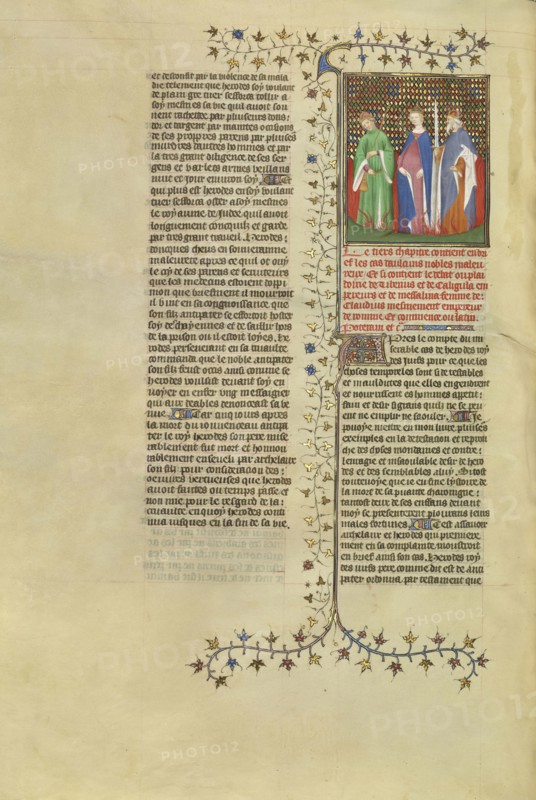 et desconfit par la violence de sa mala
die tellement que herodes soy voulant
de plain gre tuer sefforca tollir a
soy mesmes sa vie quil auoit sou
uent rachettee par plusieurs dons
dor et dargent par maintes occisions
de ses propres parens par pluseurs
murdres dautres hommes et par
la tres grant diligence de ses ser
gens et varles armes veillans
nuit et iour enuiron soy. Et
qui plus est herodes en soy voulant
tuer sefforca oster a soy mesmes
le royaume de Judee quil auoit
longuement conquis et garde
par tres grant traueil. herodes
donques cheus en souueraine
maleurete apres ce quil ot ouy
le cry de ses parens et seruiteurs
que les medecins estoient dopi
nion que briefment il mourroit
il vint en sa congnoissance que
son filz antipater se efforcoit hoster
soy des chayennes et de saillir hors
de la prison ou il estoit loyes. he
rodes perseuerant en sa cruaulte
commanda que le noble antipater
son filz feust occis ainsi comme se
herodes voulsist deuant soy en
uoyer en enfer vng messagier
qui aux deables denoncast sa ve
nue. Car cinq iours apres
la mort du iouuenceau antipa
ter le roy herodes son pere mise
rablement fut mort et honnou
rablement enseueli par archelaus
son filz pour consideracion des
oeuures vertueuses que herodes
auoit faictes ou temps passe et
non mie pour le regard de la
cruaulte en quoy herodes conti
nua iusques en la fin de sa vie.
Le tiers chapitre contient en brief
et les cas daulcuns nobles maleu
reux Et si contient le debat ou plai
doirie de Tiberius et de Caligula em
pereurs et de messalina femme de
Claudius mesmement empereur
de romme Et commence ou latin.
Poteram et c.
Apres le compte du mi
serable cas de herodes roy
des iuifs pour ce que les
choses temporelles sont si detestables
et mauldictes que elles engendrent
et nourrissent es hommes appetit
faim et desir si grans quilz ne se peu
ent ne emplir ne saouler. Je
pouoye mettre en mon liure pluseurs
exemples en la detestacion et reprou
che des choses mondaines et contre
lenragie et insaoulable desir de hero
des et des semblables a luy. Si tost
toutesuoye que ie eu fine lystoire de
la mort de sa puante charoingne
tantost deux de ses enfans deuant
moy se presenterent plourans leurs
males fortunes. Cest assauoir
archelaus et herodes qui premiere
ment en sa complainte monstroit
en brief ainsi son cas. herodes roy
des iuifs pere comme dit est de anti
pater ordonna par testament que
PHOTO12